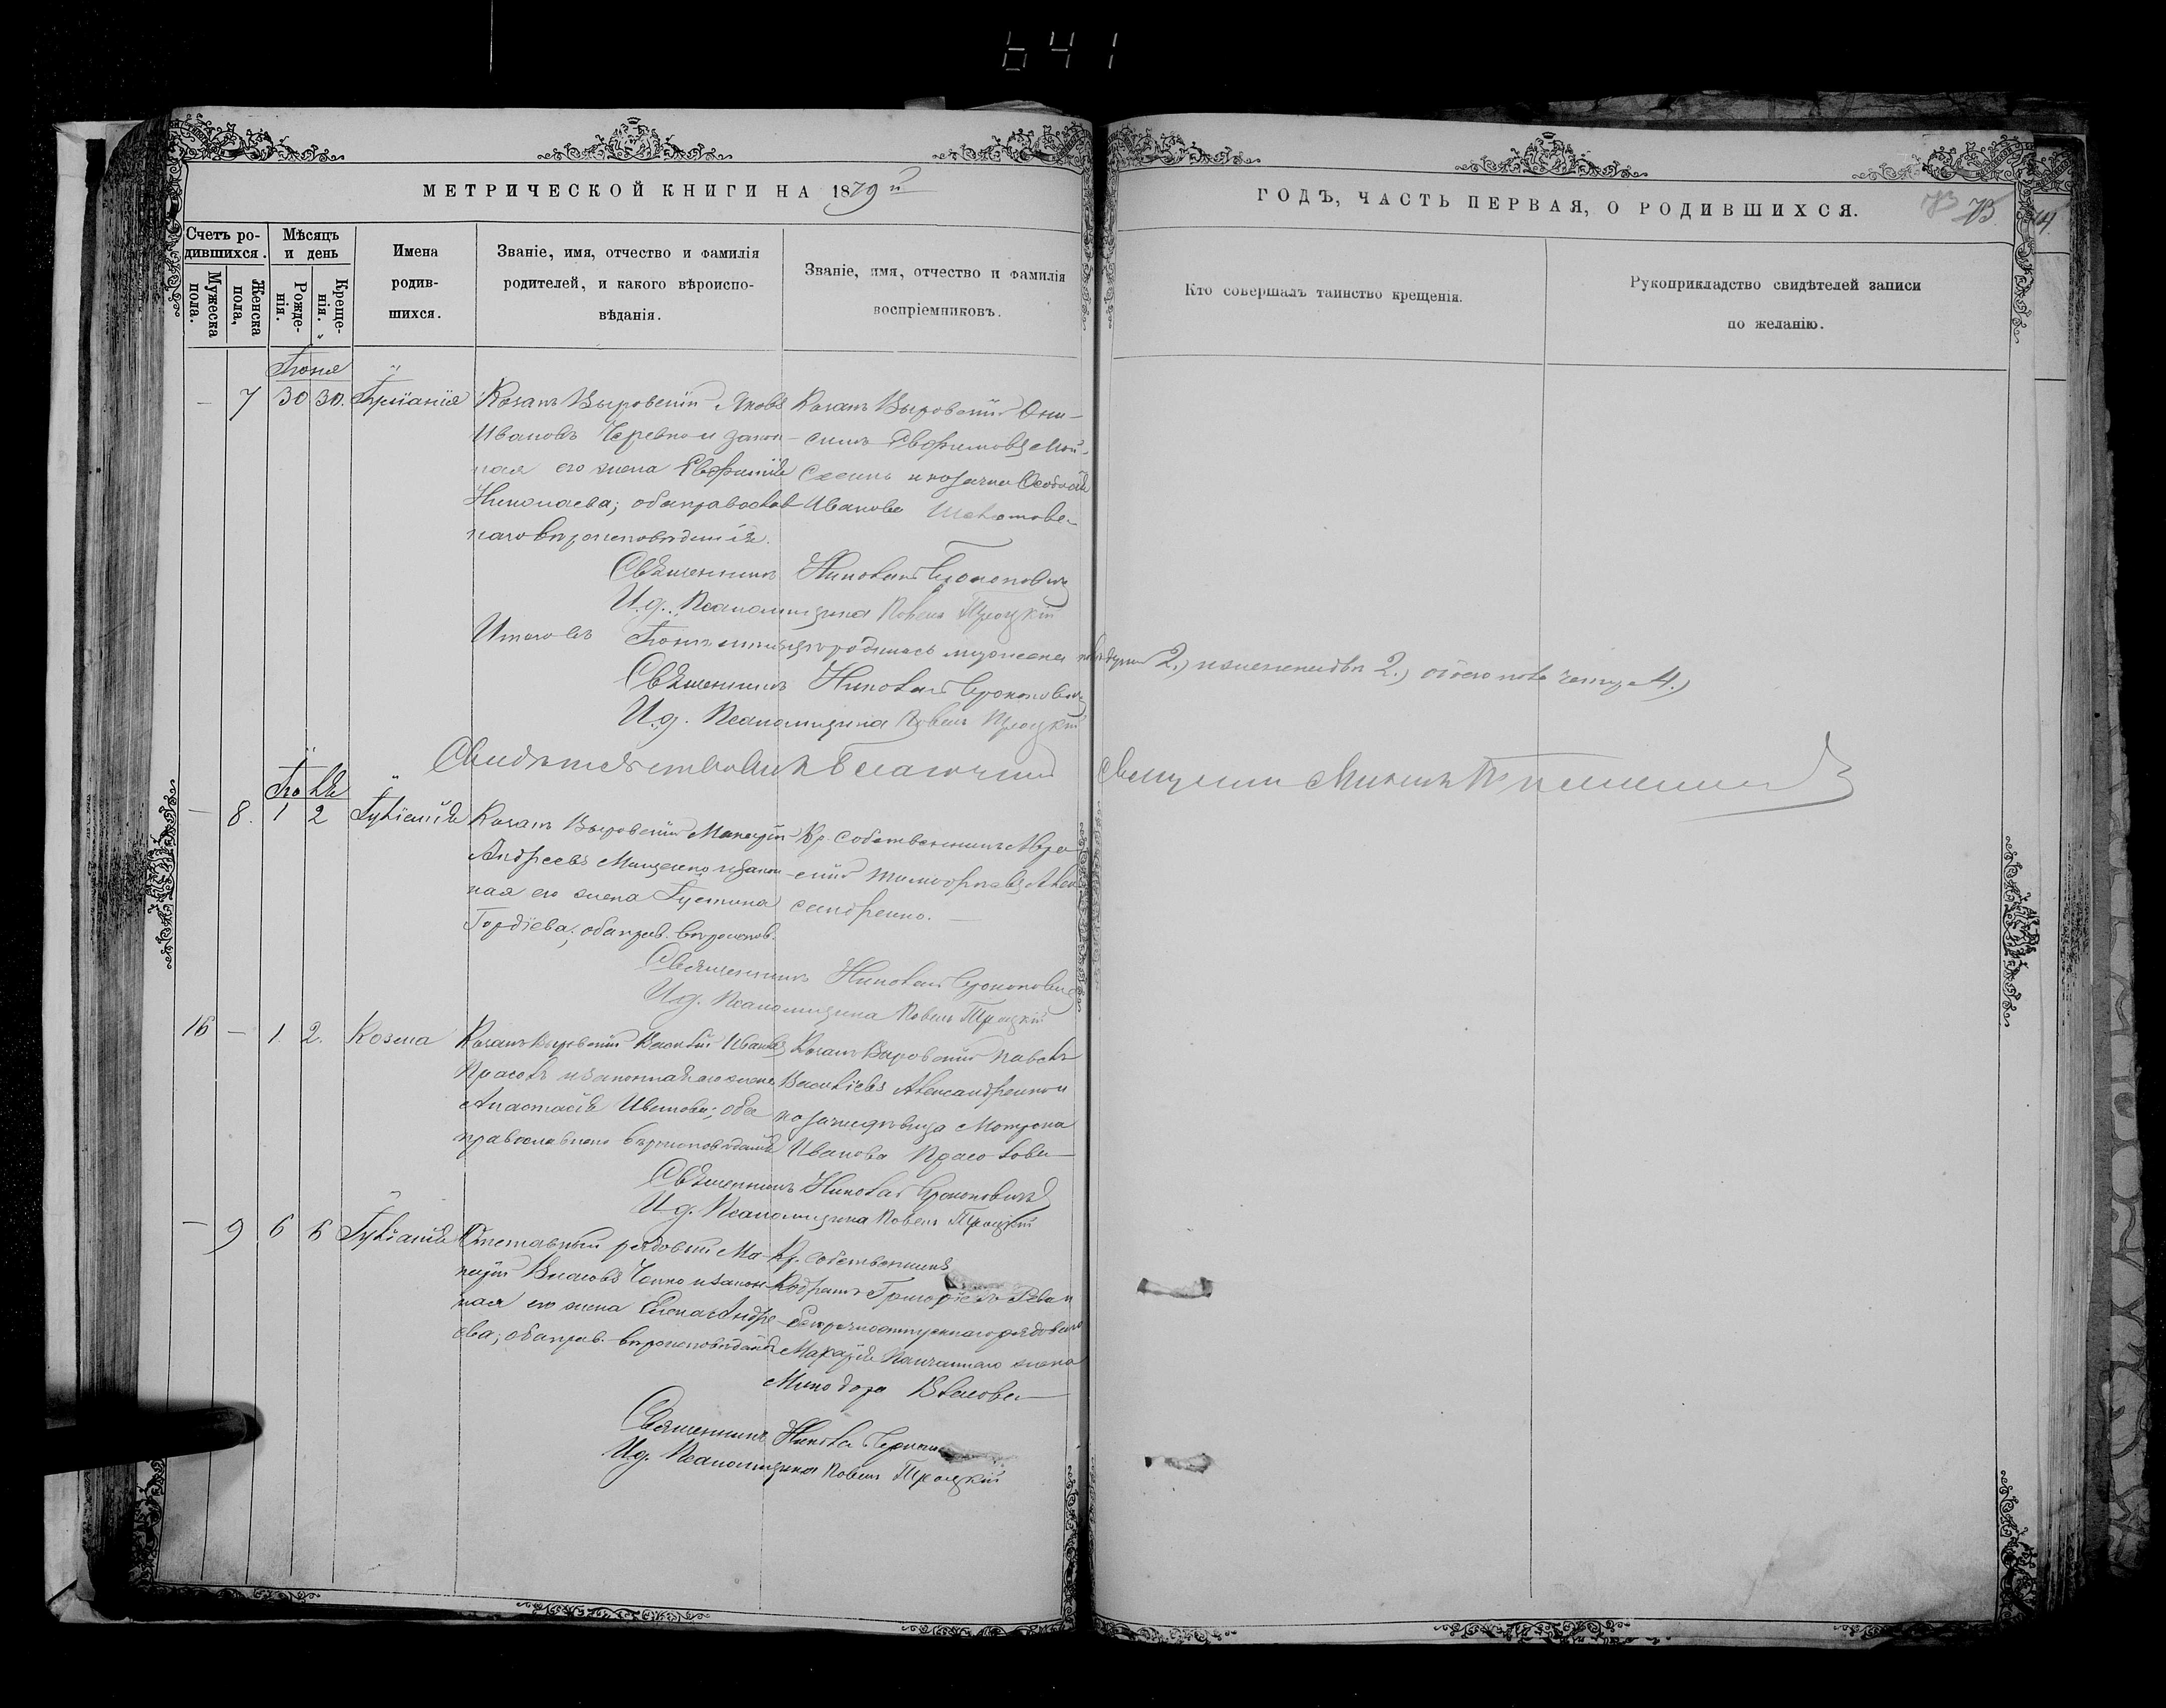 641
МЕТРИЧЕСКОЙ КНИГИ НА 1879й
ГОДЪ, ЧАСТЬ ПЕРВАЯ, О РОДИВШИХСЯ.
73
Счетъ ро-
дившихся.
Мужеска
пола.
Женска
пола,
Мѣсяцъ
и день
Рожде-
нія.
Креще-
нія.
Имена
родив-
шихся.
Званіе, имя, отчество и фамилія
родителей, и какого вѣроиспо-
вѣданія.
Званіе, имя, отчество и фамилія
воспріемниковъ.
Кто совершалъ таинство крещенія.
Рукоприкладство свидѣтелей записи
по желанію.
Іюня
— 7 30 30. Іуліанія
Козакъ Выровскій Яковъ
Ивановъ и закон-
ная его жена Евфимія
Николаева; оба православ-
наго вѣроисповѣданія.
Козакъ Выровскій Они-
симъ Евфимовъ
и козачка Феодосія
Иванова
Священникъ Николай Прокоповичъ
И.д. Псаломщика Павелъ Троцкій
Итого въ Іюнѣ мѣсяцѣ родилось мужеска пола двое 2.) и женска двѣ 2.) обоего пола четыре 4.)
Священникъ Николай Прокоповичъ
И.д. Псаломщика Павелъ Троцкій
Свидѣтельствовалъ Благочинный Священникъ Михаилъ
Іюля
— 8. 1 2 Іуліанія
Козакъ Выровскій Макарій
Андреевъ Мищенко и закон-
ная его жена Іустина
Гордіева; оба прав. вѣроиспов.
Кр. собственникъ
Тимофеевъ Алек-
сандренко.
Священникъ Николай Прокоповичъ
И.д. Псаломщика Павелъ Троцкій
16 — 1. 2. Косма
Козакъ Выровскій Василій Ивановъ
Прасолъ и законная его жена
Анастасія; оба
православнаго вѣроисповѣданія
Козакъ Выровскій Павелъ
Васильевъ Александренко и
козачья дѣвица Мотрона
Иванова Прасолова
Священникъ Николай Прокоповичъ
И.д. Псаломщика Павелъ Троцкій
— 9 6 6 Іуліанія
Отставный рядовый Ма-
карій Власовъ и закон-
ная его жена Елена Андре-
ева; оба прав. вѣроисповѣданія
Кр. собственникъ
Кодратъ Григоріевъ
безсрочноотпускнаго рядоваго
Макарія жена
Минодора Власова
Священникъ Николай
И.д. Псаломщика Павелъ Троцкій